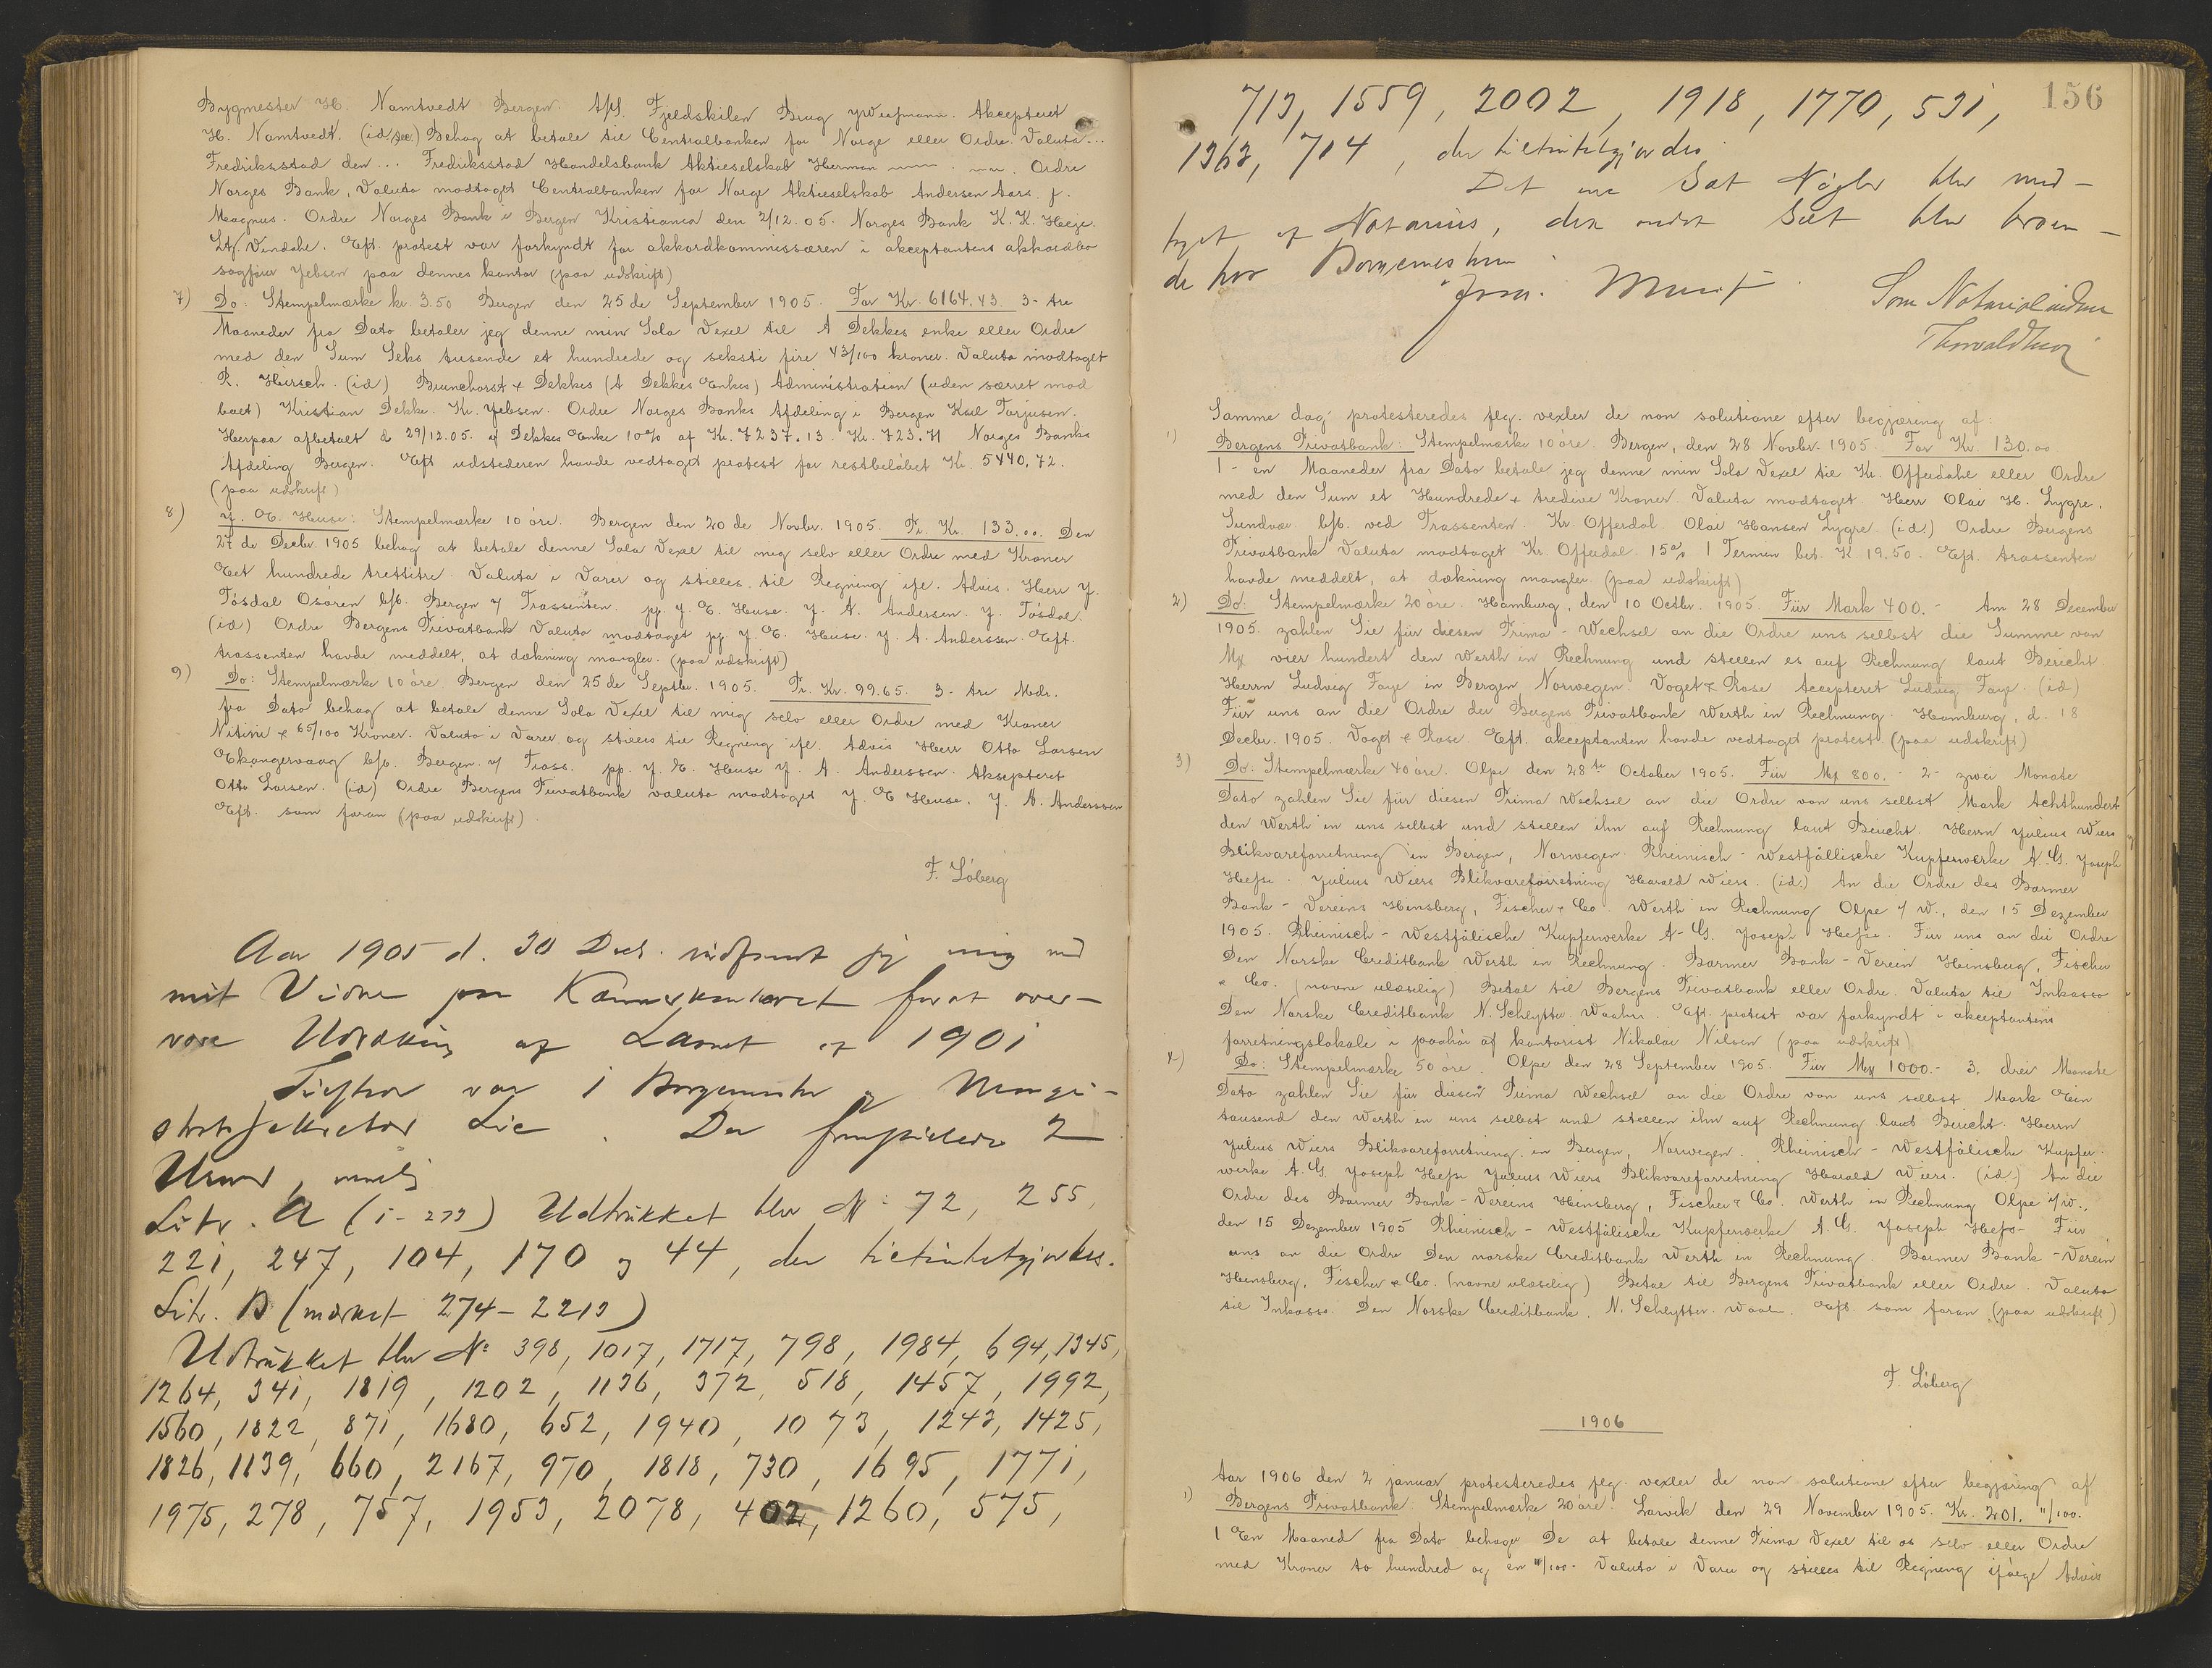 Bygmester H. Namtvedt Bergen. Afs. Fjeldskilen Brug Akcepteret
H. Namtvedt. (id) Behag at betale til Centralbanken for Norge eller Ordre. Valuta...
Fredriksstad den... Fredriksstad Handelsbank Aktieselskab Herman Ordre
Norges Bank, Valuta modtaget Centralbanken for Norge Aktieselskab Andersen Aars. f.
Magnus. Ordre Norges Bank i Bergen Kristiania den 2/12.05. Norges Bank K. K. Heje.
Vindahl. Eft. protest var forkyndt for akkordkommissæren i akceptantens akkordbo
sagfører Jebsen paa dennes kontor (paa udskrift)
7) Do: Stempelmærke kr. 3.50 Bergen den 25 de September 1905. For Kr. 6164.43. 3- tre
Maaneder fra Dato betaler jeg denne min Sola Vexel til A Dekkes enke eller Ordre
med den Sum Seks tusende et hundrede og seksti fire 43/100 kroner. Valuta modtaget
R. Hirsch. (id) Brunchorst & Dekkes (A Dekkes Enkes) Administration (uden særret mod
boet) Kristian Dekke. Kr. Jebsen. Ordre Norges Banks Afdeling i Bergen Karl Torjusen.
Herpaa afbetalt d 29/12.05. af Dekkes Enke 10% af Kr. 7237.13. Kr. 723.71 Norges Banks
Afdeling Bergen. Eft udstederen havde vedtaget protest for restbeløbet Kr. 5440.72.
(paa udskrift)
8) J. E. Heuse: Stempelmærke 10 øre. Bergen den 20 de Novbr. 1905. Pr. Kr. 133.00. Den
27 de Decbr. 1905 behag at betale denne Sola Vexel til mig selv eller Ordre med Kroner
Eet hundrede trettitre. Valuta i Varer og stilles til Regning ifl. Advis. Herr J.
Tösdal Osören b/b. Bergen y Trassenten. pp. J. E. Heuse. J. A. Andersen. J. Tösdal.
(id) Ordre Bergens Privatbank Valuta modtaget pp J. E. Heuse. J. A. Anderssen. Eft.
trassenten havde meddelt, at dækning mangler. (paa udskrift)
9) Do: Stempelmærke 10 øre Bergen den 25 de Septbr. 1905. Pr. Kr. 99.65. 3- tre Mdr.
fra Dato behag at betale denne Sola Vexel til mig selv eller Ordre med Kroner
Nitini & 65/100 Kroner. Valuta i Varer og stilles til Regning ifl. Advis Herr Otto Larsen
Ekangervaag b/b. Bergen. y Trass. pp. J. E. Heuse J. A. Anderssen. Aksepteret
Otto Larsen. (id) Ordre Bergens Privatbank valuta modtaget J. E Heuse. J. A. Anderssen
Eft. som foran (paa udskrift).
F. Löberg
Aar 1905 d. 30 Decb. indfandt jeg mig med
mit Vidne paa Kæmnerkontoret for at over-
være Udtrækning af Laanet af 1901
Tilstede var 1 Borgermester og Magi-
stratssekretær Lie. Der fremsattes 2
Urner, nemlig
Litr. A (1-273) Udtrukket blev No: 72, 255,
221, 247, 104, 170 og 44, der tilintetgjordes.
Litr. B (mærket 274-2213)
Udtrukket blev No: 398, 1017, 1717, 798, 1984, 694, 1345,
1264, 341, 1819, 1202, 1136, 372, 518, 1457, 1992,
1560, 1822, 871, 1680, 652, 1940, 1073, 1243, 1425,
1826, 1139, 660, 2167, 970, 1818, 730, 1695, 1771,
1975, 278, 757, 1953, 2078, 402, 1260, 575,
156
713, 1559, 2002, 1918, 1770, 531,
1363, 704, der tilintetgjordes.
Det ene Sæt Nøgler blev med-
taget af Notarius, det andet Sæt blev beroen-
de hos Borgermesteren.
Som Notarialvidne
Samme dag protesteredes flg. vexler de non solutione efter begjæring af:
1) Bergens Privatbank: Stempelmærke 10 øre. Bergen, den 28 Novbr. 1905. For Kr. 130.00
1- en Maaneder fra Dato betale jeg denne min Sola Vexel til Kr. Offerdahl eller Ordre
med den Sum et Hundrede & tredive Kroner. Valuta modtaget. Herr Olai H. Lygre.
Sundvor b/b. ved Trassenten. Kr. Offerdal. Olai Hansen Lygre. (id) Ordre Bergens
Privatbank Valuta modtaget Kr. Offerdal. 15% 1 Termin bet. K. 19.50. Eft. trassenten
havde meddelt, at dækning mangler. (paa udskrift)
2) Do: Stempelmærke 20 øre. Hamburg, den 10 Octbr. 1905. Für Mark 400.- Am 28 December
1905. zahlen Sie für diesen Prima-Wechsel an die Ordre uns selbst die Summe von
Mk vier hundert den Werth in Rechnung und stellen es auf Rechnung laut Bericht.
Herrn Ludvig Faye in Bergen Norwegen. Voget & Rose Accepteret Ludvig Faye. (id)
Für uns an die Ordre der Bergens Privatbank Werth in Rechnung. Hamburg, d. 18
Decbr. 1905. Voget & Rose. Eft. akceptanten havde vedtaget protest (paa udskrift)
3) Do: Stempelmærke 40 øre. Olpe den 28te October 1905. Für Mk 800. - 2- zwei Monate
Dato zahlen Sie für diesen Prima Wechsel an die Ordre von uns selbst Mark Achthundert
den Werth in uns selbst und stellen ihn auf Rechnung laut Bericht. Herrn Julius Wiers
Blikvareforretning in Bergen, Norwegen. Rheinisch-Westfällische Kupferwerke A.G. Joseph
Hesse. Julius Wiers Blikvareforretning Harald Wiers. (id) An die Ordre des Barmer
Bank-Vereins Hinsberg, Fischer & Co. Werth in Rechnung Olpe y W., den 15 Dezember
1905. Rheinisch-Westfälische Kupferwerke A-G. Joseph Hesse. Für uns an die Ordre
Den Norske Creditbank Werth in Rechnung. Barmer Bank-Verein Hinsberg, Fischer
& Co. (navne ulæselig) Betal til Bergens Privatbank eller Ordre. Valuta til Inkasso
Den Norske Creditbank N. Schlytter. Eft. protest var forkyndt i akceptantens
forretningslokale i paahør af kontorist Nikolai Nilsen (paa udskrift)
4) Do: Stempelmærke 50 øre. Olpe den 28 September 1905. Für Mk 1000.- 3. drei Monate
Dato zahlen Sie für diesen Prima Wechsel an die Ordre von uns selbst Mark Ein
tausend den Werth in uns selbst und stellen ihn auf Rechnung laut Bericht. Herrn
Julius Wiers Blikvareforretning in Bergen, Norwegen. Rheinisch-Westfälische Kupfer-
werke A.G. Joseph Hesse Julius Wiers Blikvareforretning Harald Wiers. (id) An die
Ordre des Barmer Bank-Vereins Hinsberg, Fischer & Co. Werth in Rechnung Olpe y/w.,
den 15 Dezember 1905 Rheinisch-Westfälische Kupferwerke A.G. Joseph Hesse- Für
uns an die Ordre Den norske Creditbank Werth in Rechnung. Barmer Bank-Verein
Hinsberg, Fischer & Co. (navne ulæselig) Betal til Bergens Privatbank eller Ordre. Valuta
til Inkasso. Den Norske Creditbank. N. Schlytter. Eft. som foran (paa udskrift)
F. Löberg
1906
Aar 1906 den 2 januar protesteredes flg. vexler de non solutione efter begjæring af
1) Bergens Privatbank Stempelmærke 20 øre. Larvik den 29 November 1905. Kr. 201. 11/100.
1 En Maaned fra Dato behager De at betale denne Prima Vexel til os selv eller Ordre
med Kroner to hundred og en 11/100- Valuta i Varer og stilles til Regning ifølge Advis